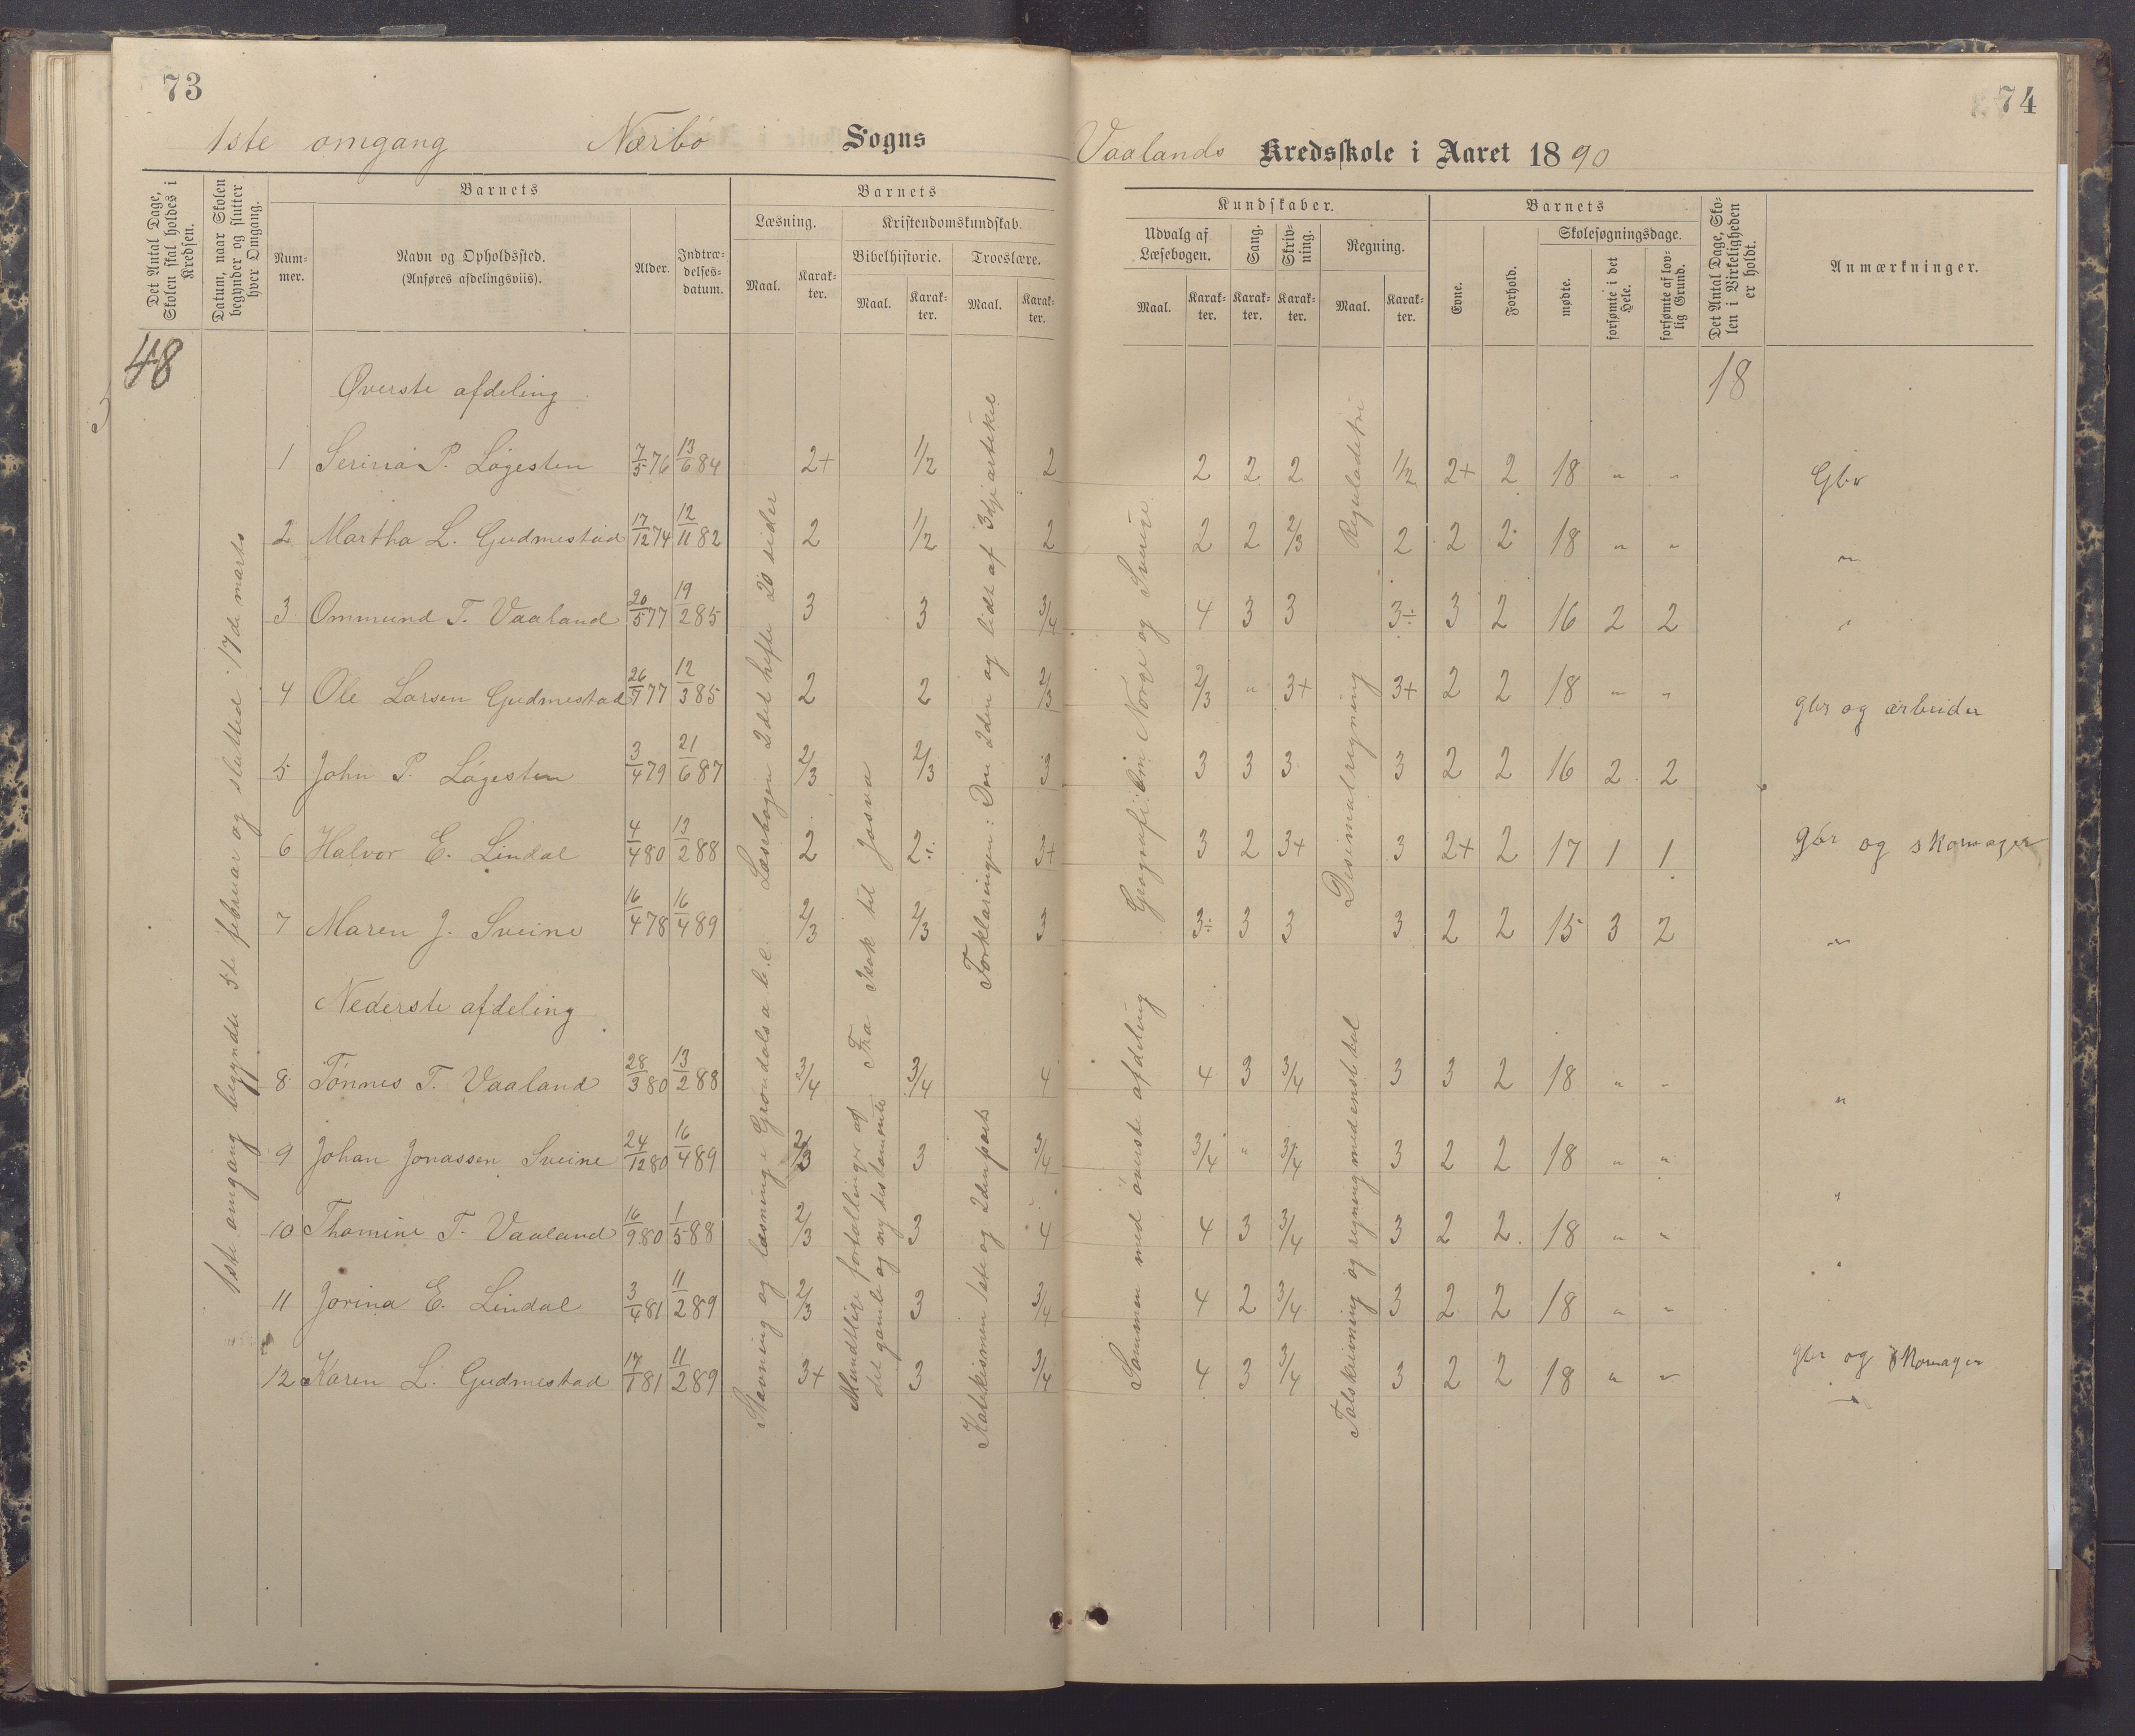 73
1ste omgang Nærbö Sogns
Det Antal Dage, Skolen skal holdes i Kredsen.
Datum, naar Skolen begynder og slutter hver Omgang.
Barnets
Num-mer.
Navn og Opholdssted.
(Anføres afdelingsviis).
Alder.
Indtræ-delses-datum.
Barnets
Læsning.
Kristendomskundskab.
Maal. Karak-ter.
Bibelhistorie. Troeslære.
Maal. Karak-ter. Maal. Karak-ter.
48
1ste omgang begyndte 5te februar og slutted 17de marts
Læsebogen 2det hefte 20 sider
Stavning og læsning i Grøndals a b c
Fra Isak til Josva
Mundtlige fortællinger af
det gamle og ny testamente
Forklaringen: Den 2den og lidt af 3dje artikel
Katekismen 1ste og 2den part
Øverste afdeling
1 Serina P. Lögesten 7/5 76 13/6 84 2+ 1/2 2
2 Martha L. Gudmestad 17/12 74 12/11 82 2 1/2 2
3 Ommund T. Vaaland 20/5 77 19/2 85 3 3 3/4
4 Ole Larsen Gudmestad 26/7 77 12/3 85 2 2 2/3
5 John P. Lögesten 3/4 79 21/6 87 2/3 2/3 3
6 Halvor E. Lindal 4/4 80 13/2 88 2 2÷ 3+
7 Maren J. Sveine 16/4 78 16/4 89 2/3 2/3 3
Nederste afdeling
8 Tönnes T. Vaaland 28/3 80 13/2 88 3/4 3/4 4
9 Johan Jonassen Sveine 24/12 80 16/4 89 2/3 3 3/4
10 Thomine T. Vaaland 16/9 80 1/5 88 2/3 3 4
11 Jorina E. Lindal 3/4 81 11/2 89 2/3 3 3/4
12 Karen L. Gudmestad 17/7 81 11/2 89 3+ 3 3/4
74
Vaalands Kredsskole i Aaret 1890
Kundskaber.
Udvalg af Læsebogen.
Sang.
Skriv-ning.
Regning.
Maal. Karak-ter. Karak-ter. Karak-ter. Maal. Karak-ter.
Barnets
Evne.
Forhold.
Skolesøgningsdage.
mødte.
forsømte i det Hele.
forsømte af lov-lig Grund.
Det Antal Dage, Sko-len i Virkeligheden er holdt.
Anmærkninger.
18
Geografi: Om Norge og Sverige
Sammen med överste afdeling
Reguladetri
Desimalregning
Talskrivning og regning med enste tal
2 2 2 1/2 2+ 2 18 " " Gbr
2 2 2/3 2 2 2 18 " " "
4 3 3 3÷ 3 2 16 2 2 "
2/3 " 3+ 3+ 2 2 18 " " gbr og arbeider
3 3 3 3 2 2 16 2 2
3 2 3+ 3 2+ 2 17 1 1 gbr og skomager
3÷ 3 3 3 2 2 15 3 2 "
4 3 3/4 3 3 2 18 " " "
3/4 " 3/4 3 2 2 18 " " "
4 3 3/4 3 2 2 18 " " "
4 2 3/4 3 2 2 18 " " gbr og skomager
4 3 3/4 3 2 2 18 " " "